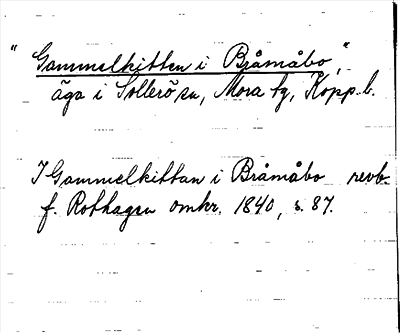 "Gammelkitten i Bråmåbo,"
äga i Sollerö sn, Mora tg, Kopp.b.
I Gammelkittan i Bråmåbo revb.
f. Rothagen omkr. 1840, s. 87.